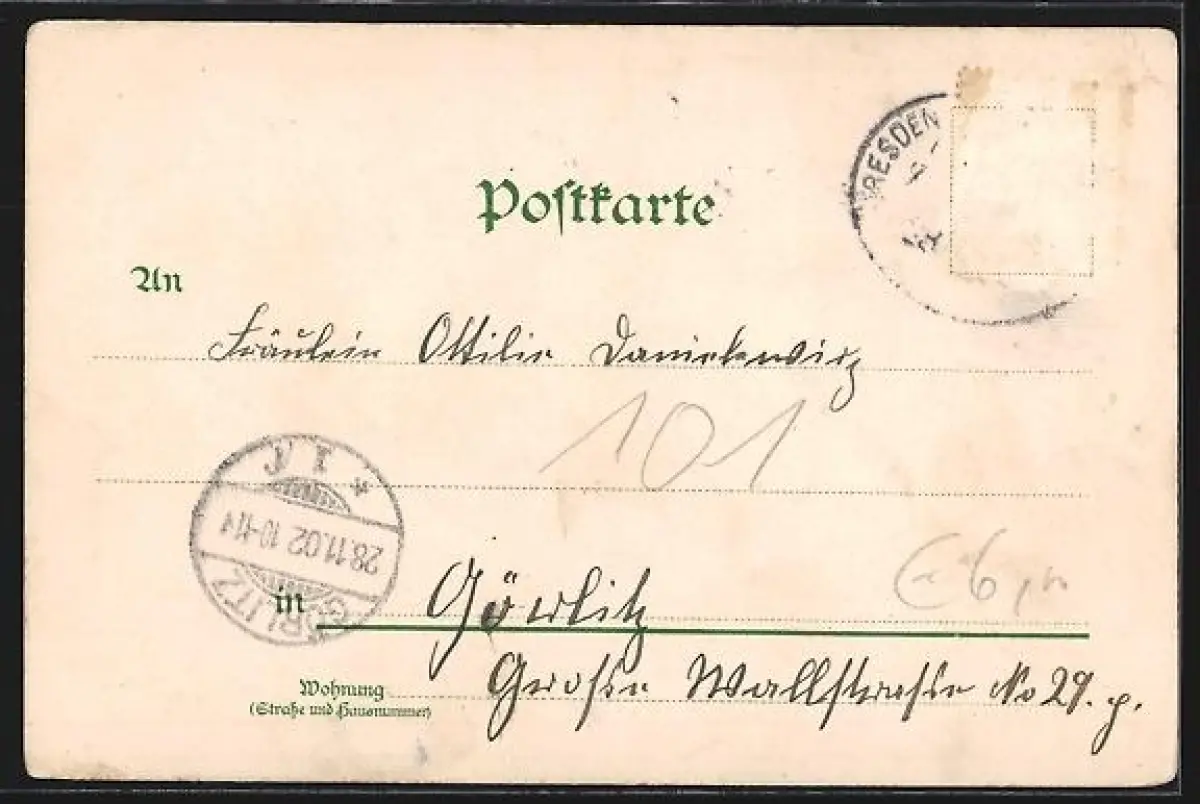 Postkarte
RESDEN
An
Fräulein Ottilie
101
28.11.02 10-11V
GÖRLITZ
€ 6,
in Görlitz
Wohnung
(Straße und Hausnummer)
Grosse Wallstrasse No 29. p.